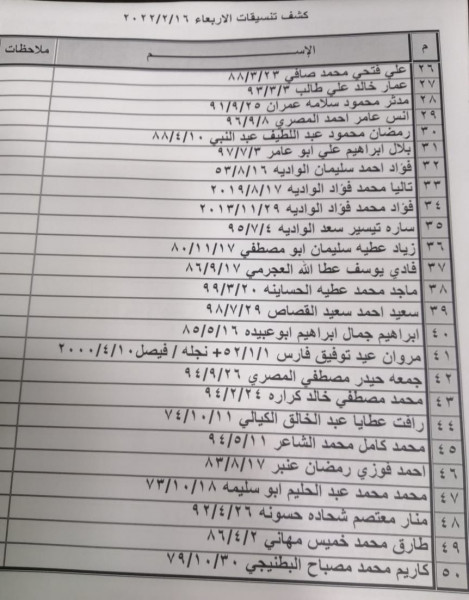 كشف تنسيقات الاربعاء ٢٠٢٢/٢/١٦
م الإســـم ملاحظات
٢٦ علي فتحي محمد صافي ٨٨/٣/٢٣
٢٧ عمار خالد علي طالب ٩٣/٣/٣
٢٨ مدثر محمود سلامه عمران ٩١/٩/٢٥
٢٩ انس عامر احمد المصري ٩٦/٩/٨
٣٠ رمضان محمود عبد اللطيف عبد النبي ٨٨/٤/١٠
٣١ بلال ابراهيم علي ابو عامر ٩٧/٧/٣
٣٢ فؤاد احمد سليمان الواديه ٥٣/٨/١٦
٣٣ تاليا محمد فؤاد الواديه ٢٠١٩/٨/١٧
٣٤ فؤاد محمد فؤاد الواديه ٢٠١٣/١١/٢٩
٣٥ ساره تيسير سعد الواديه ٩٥/٧/٤
٣٦ زياد عطيه سليمان ابو مصطفي ٨٠/١١/١٧
٣٧ فادي يوسف عطا الله العجرمي ٨٦/٩/١٧
٣٨ ماجد محمد عطيه الحساينه ٩٩/٣/٢٠
٣٩ سعيد احمد سعيد القصاص ٩٨/٧/٢٩
٤٠ ابراهيم جمال ابراهيم ابوعبيده ٨٥/٥/١٦
٤١ مروان عيد توفيق فارس ٥٢/١/١+ نجله / فيصل٢٠٠٠/٤/١٠
٤٢ جمعه حيدر مصطفي المصري ٩٤/٩/٢٦
٤٣ محمد مصطفي خالد كراره ٩٤/٢/٢٤
٤٤ رافت عطايا عبد الخالق الكيالي ٧٤/١٠/١١
٤٥ محمد كامل محمد الشاعر ٩٤/٥/١١
٤٦ احمد فوزي رمضان عنبر ٨٣/٨/١٧
٤٧ محمد محمد عبد الحليم ابو سليمه ٧٣/١٠/١٨
٤٨ منار معتصم شحاده حسونه ٩٢/٤/٢٦
٤٩ طارق محمد خميس مهاني ٨٦/٤/٢
٥٠ كاريم محمد مصباح البطنيجي ٧٩/١٠/٣٠